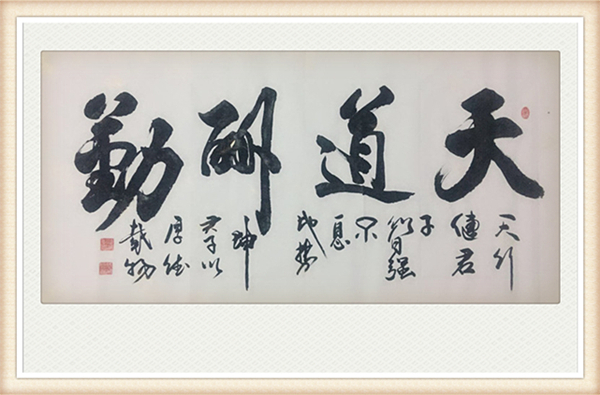 天道酬勤
天行
健君
子
以自强
不
息
地势
坤
君子以
厚德
載物